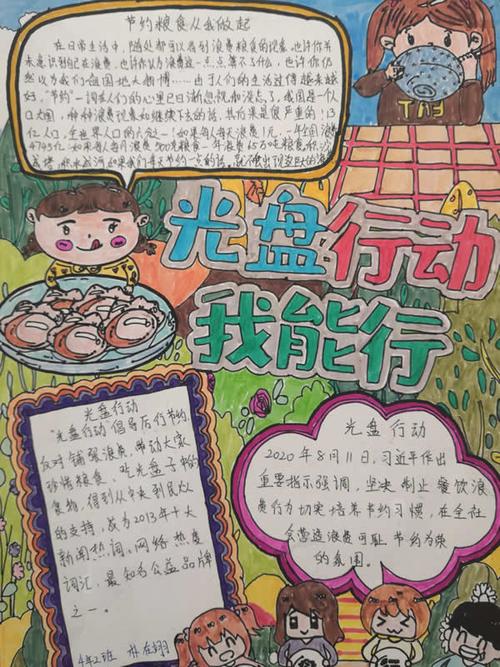 节约粮食从我做起
在日常生活中,随处都可以看到浪费粮食的现象。也许你并
未意识到自己在浪费,也许你认为浪费这一点点算不了什么,也许你仍
然以为我们
祖国地大物博……由于人们的生活过得越来越
好,"节约"一词在人们的心里已日渐忽视和淡忘了。我国是一个人
口大国,种种浪费现象如继续下去的话,其后果是很严重的!13
亿人口,
如果每人每天浪费1元,一年全国浪费
4745亿
如果每人每月浪费500克粮食一年浪费
万吨粮食
如果我们每天节约一点的话,
光盘行动
我能行
光盘行动
"光盘行动"倡导厉行节约,
反对铺张浪费,带动大家
珍惜粮食、吃光盘子中的
食物,得到从中央到民众
的支持,成为2013年十大
新闻热词、网络热度
词汇,最知名公益品牌
之一。
4年2班
光盘行动
2020年8月11日,习近平作出
重要指示强调,坚决制止餐饮浪
费行为切实培养节约习惯,在全社
会营造浪费可耻、节约为荣
的氛围。